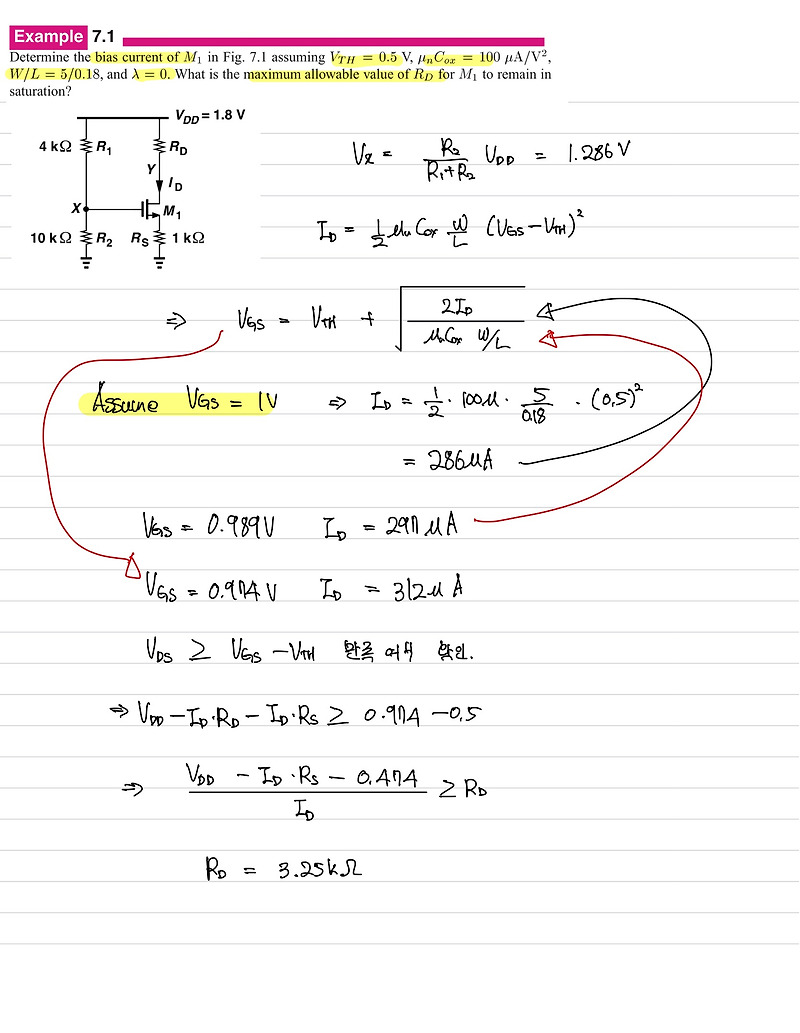 Example 7.1
Determine the bias current of M₁ in Fig. 7.1 assuming V_TH = 0.5 V, μₙC_ox = 100 μA/V²,
W/L = 5/0.18, and λ = 0. What is the maximum allowable value of R_D for M₁ to remain in
saturation?
V_DD = 1.8 V
4 kΩ R₁ R_D
Y
I_D
X M₁
10 kΩ R₂ R_S 1 kΩ
V_X = R₂/(R₁+R₂) V_DD = 1.286 V
I_D = 1/2 μₙ C_ox W/L (V_GS − V_TH)²
⇒ V_GS = V_TH + √(2I_D / (μₙC_ox W/L))
Assume V_GS = 1V ⇒ I_D = 1/2 · 100μ · 5/0.18 · (0.5)²
= 286μA
V_GS = 0.989V I_D = 297μA
V_GS = 0.974V I_D = 312μA
V_DS ≥ V_GS − V_TH 만족 여부 확인.
⇒ V_DD − I_D·R_D − I_D·R_S ≥ 0.974 − 0.5
⇒ (V_DD − I_D·R_S − 0.474)/I_D ≥ R_D
R_D = 3.25kΩ